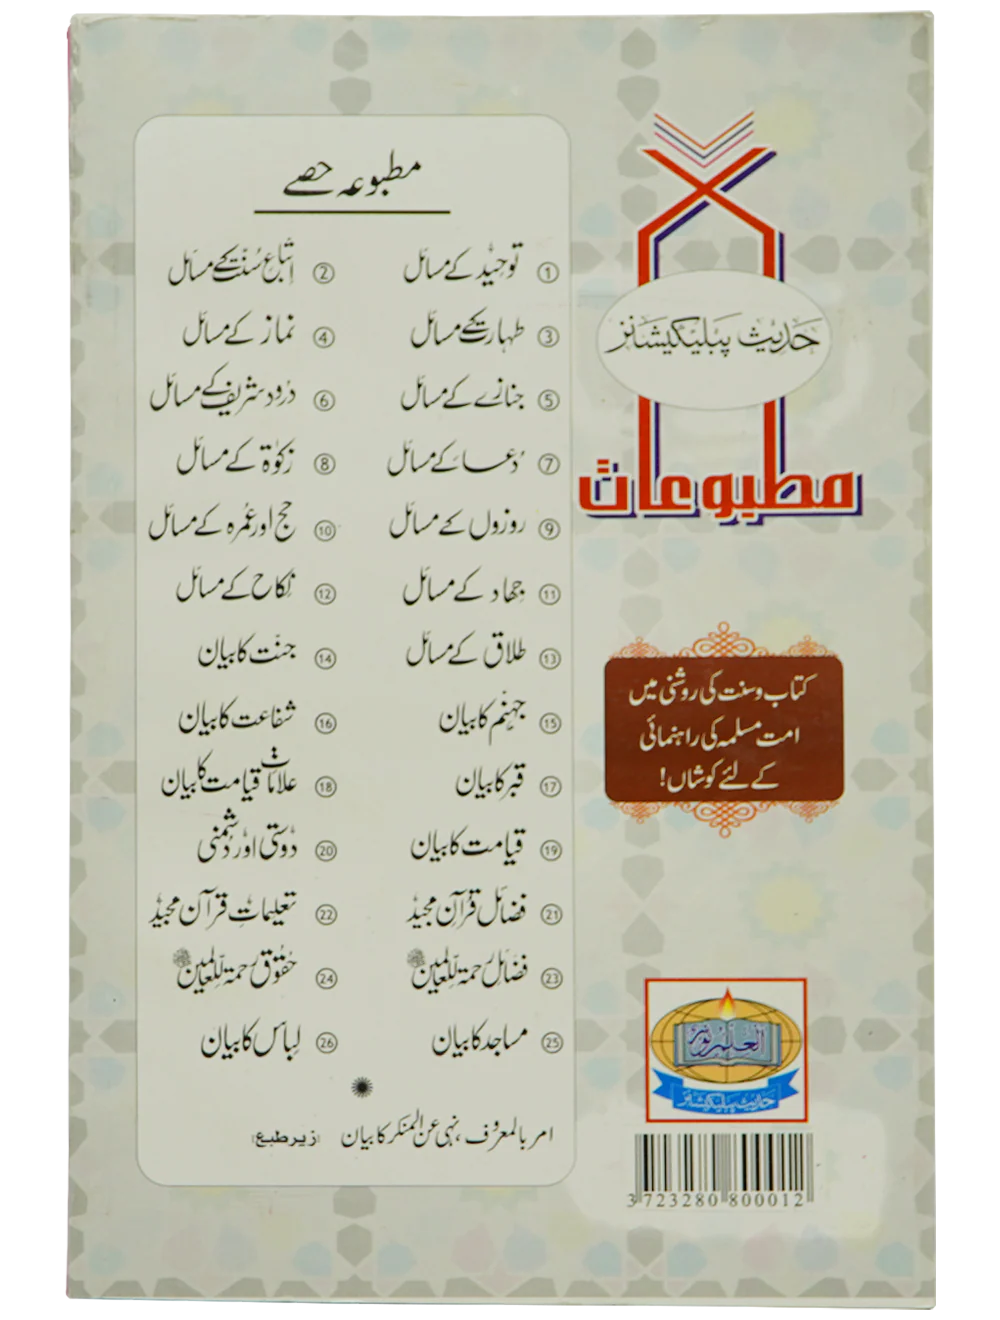 مطبوعہ حصے
① توحید کے مسائل
② اتباعِ سُنّت کے مسائل
③ طہارت کے مسائل
④ نماز کے مسائل
⑤ جنازے کے مسائل
⑥ درود شریف کے مسائل
⑦ دُعا کے مسائل
⑧ زکوٰۃ کے مسائل
⑨ روزوں کے مسائل
⑩ حج اور عُمرہ کے مسائل
⑪ جہاد کے مسائل
⑫ نکاح کے مسائل
⑬ طلاق کے مسائل
⑭ جنت کا بیان
⑮ جہنم کا بیان
⑯ شفاعت کا بیان
⑰ قبر کا بیان
⑱ علاماتِ قیامت کا بیان
⑲ قیامت کا بیان
⑳ دوستی اور دشمنی
㉑ فضائل قرآن مجید
㉒ تعلیماتِ قرآن مجید
㉓ فضائل رحمۃ للعالمین ﷺ
㉔ حقوق رحمۃ للعالمین ﷺ
㉕ مساجد کا بیان
㉖ لباس کا بیان
امر بالمعروف ، نہی عن المنکر کا بیان (زیر طبع)
حدیث پبلیکیشنز
مطبوعات
کتاب و سنت کی روشنی میں
امت مسلمہ کی راہنمائی
کے لئے کوشاں!
العلم نور
حدیث پبلیکیشنز
3 723280 800012